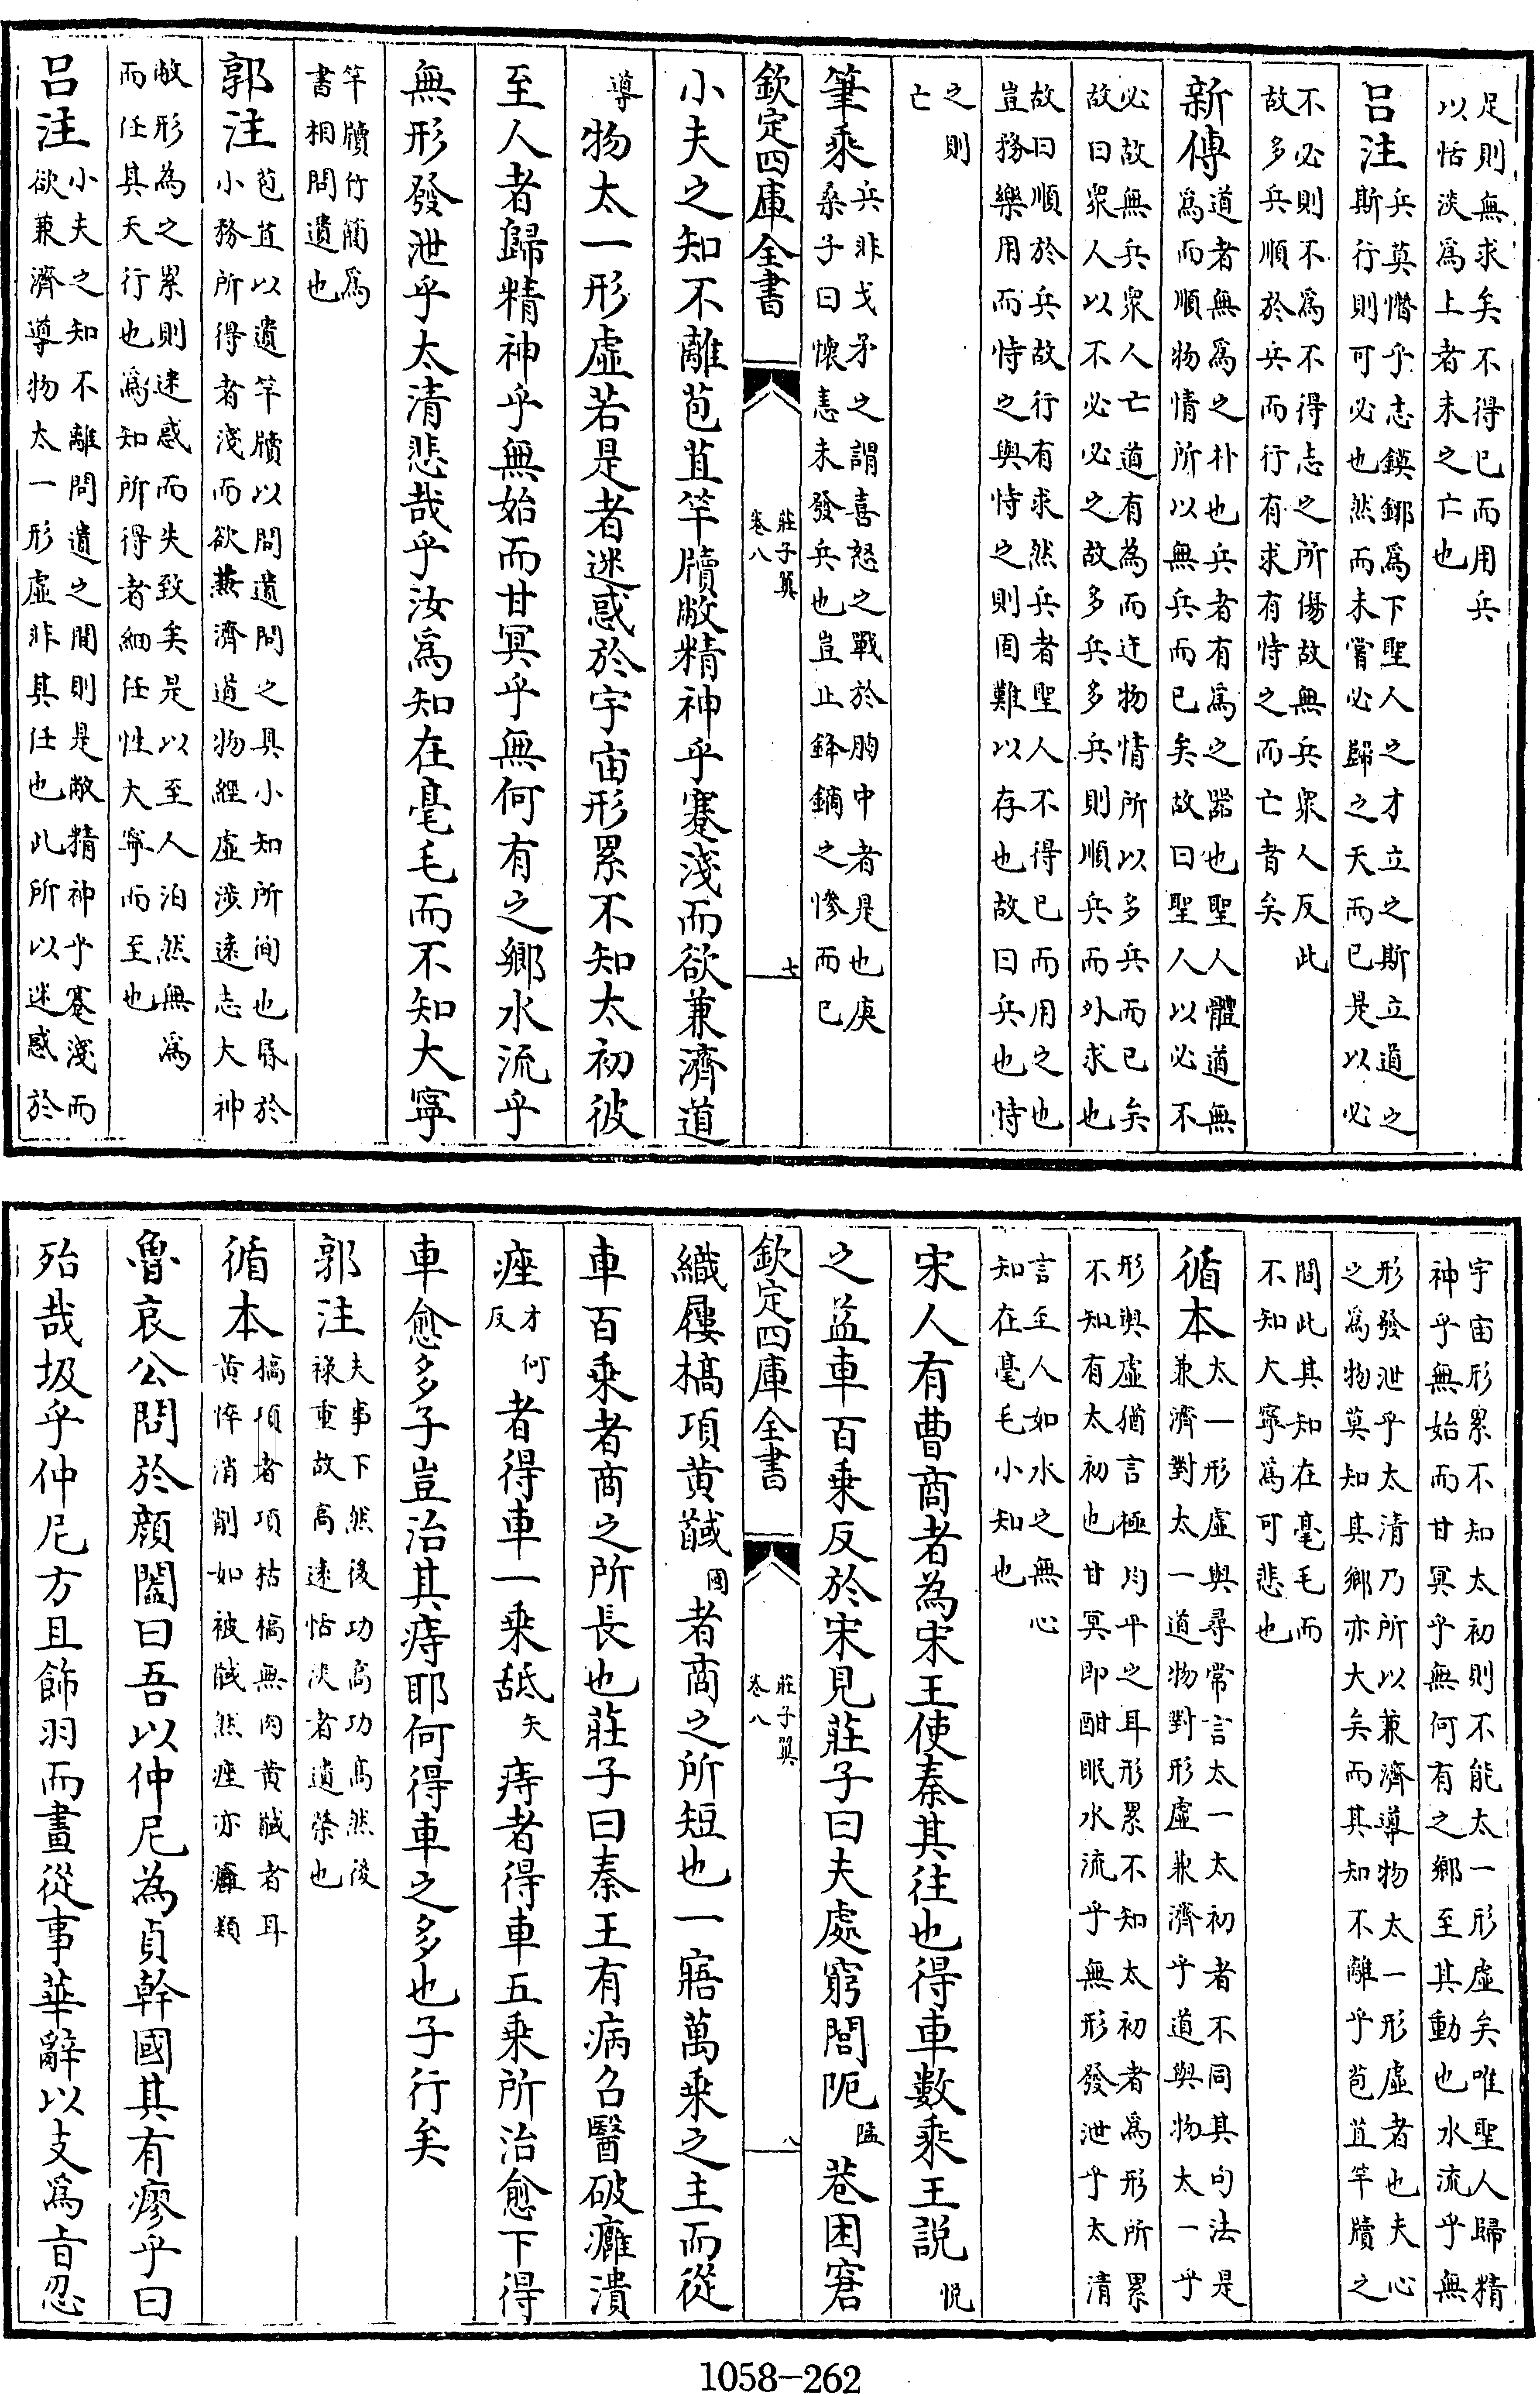 足則無求矣不得已而用兵
以恬淡爲上者未之亡也
呂注兵莫憯乎志鏌鋣爲下聖人之才立之斯立道之
斯行則可必也然而未嘗必歸之天而已是以必
不必則不爲不得志之所傷故無兵衆人反此
故多兵順於兵而行有求有恃之而亡者矣
新傳道者無爲之朴也兵者有爲之器也聖人體道無
爲而順物情所以無兵而已矣故曰聖人以必不
必故無兵衆人亡道有為而迕物情所以多兵而已矣
故曰衆人以不必必之故多兵多兵則順兵而外求也
故曰順於兵故行有求然兵者聖人不得已而用之也
豈務樂用而恃之與恃之則固難以存也故曰兵也恃
之則
亡
筆乘兵非戈矛之謂喜怒之戰於胸中者是也庚
桑子曰懷恚未發兵也豈止鋒鏑之慘而已
欽定四庫全書
莊子翼
卷八
七
小夫之知不離苞苴竿牘敝精神乎蹇淺而欲兼濟道
導物太一形虛若是者迷惑於宇宙形累不知太初彼
至人者歸精神乎無始而甘冥乎無何有之鄉水流乎
無形發泄乎太清悲哉乎汝爲知在毫毛而不知大寧
竿牘竹簡爲
書相問遺也
郭注苞苴以遺竿牘以問遺問之具小知所徇也昏於
小務所得者淺而欲兼濟道物經虛涉遠志大神
敝形為之累則迷惑而失致矣是以至人泊然無爲
而任其天行也爲知所得者細任性大寧而至也
呂注小夫之知不離問遺之間則是敝精神乎蹇淺而
欲兼濟導物太一形虛非其任也此所以迷惑於
宇宙形累不知太初則不能太一形虛矣唯聖人歸精
神乎無始而甘冥乎無何有之鄉至其動也水流乎無
形發泄乎太清乃所以兼濟導物太一形虛者也夫心
之爲物莫知其鄉亦大矣而其知不離乎苞苴竿牘之
間此其知在毫毛而
不知大寧爲可悲也
循本太一形虛與尋常言太一太初者不同其句法是
兼濟對太一道物對形虛兼濟乎道與物太一乎
形與虛猶言極均平之耳形累不知太初者爲形所累
不知有太初也甘冥即酣眠水流乎無形發泄乎太清
言至人如水之無心
知在毫毛小知也
宋人有曹商者為宋王使秦其往也得車數乘王説悅
之益車百乘反於宋見莊子曰夫處窮閭阨隘巷困窘
欽定四庫全書
莊子翼
卷八
八
織屨槁項黃馘國者商之所短也一寤萬乘之主而從
車百乘者商之所長也莊子曰秦王有病召醫破癰潰
痤才何反者得車一乘舐矢痔者得車五乘所治愈下得
車愈多子豈治其痔耶何得車之多也子行矣
郭注夫事下然後功高功高然後
祿重故高遠恬淡者遺榮也
循本槁項者項枯槁無肉黃馘者耳
黃悴消削如被馘然痤亦癰類
魯哀公問於顏闔曰吾以仲尼為貞幹國其有瘳乎曰
殆哉圾乎仲尼方且飾羽而畫從事華辭以支爲旨忍
1058-262